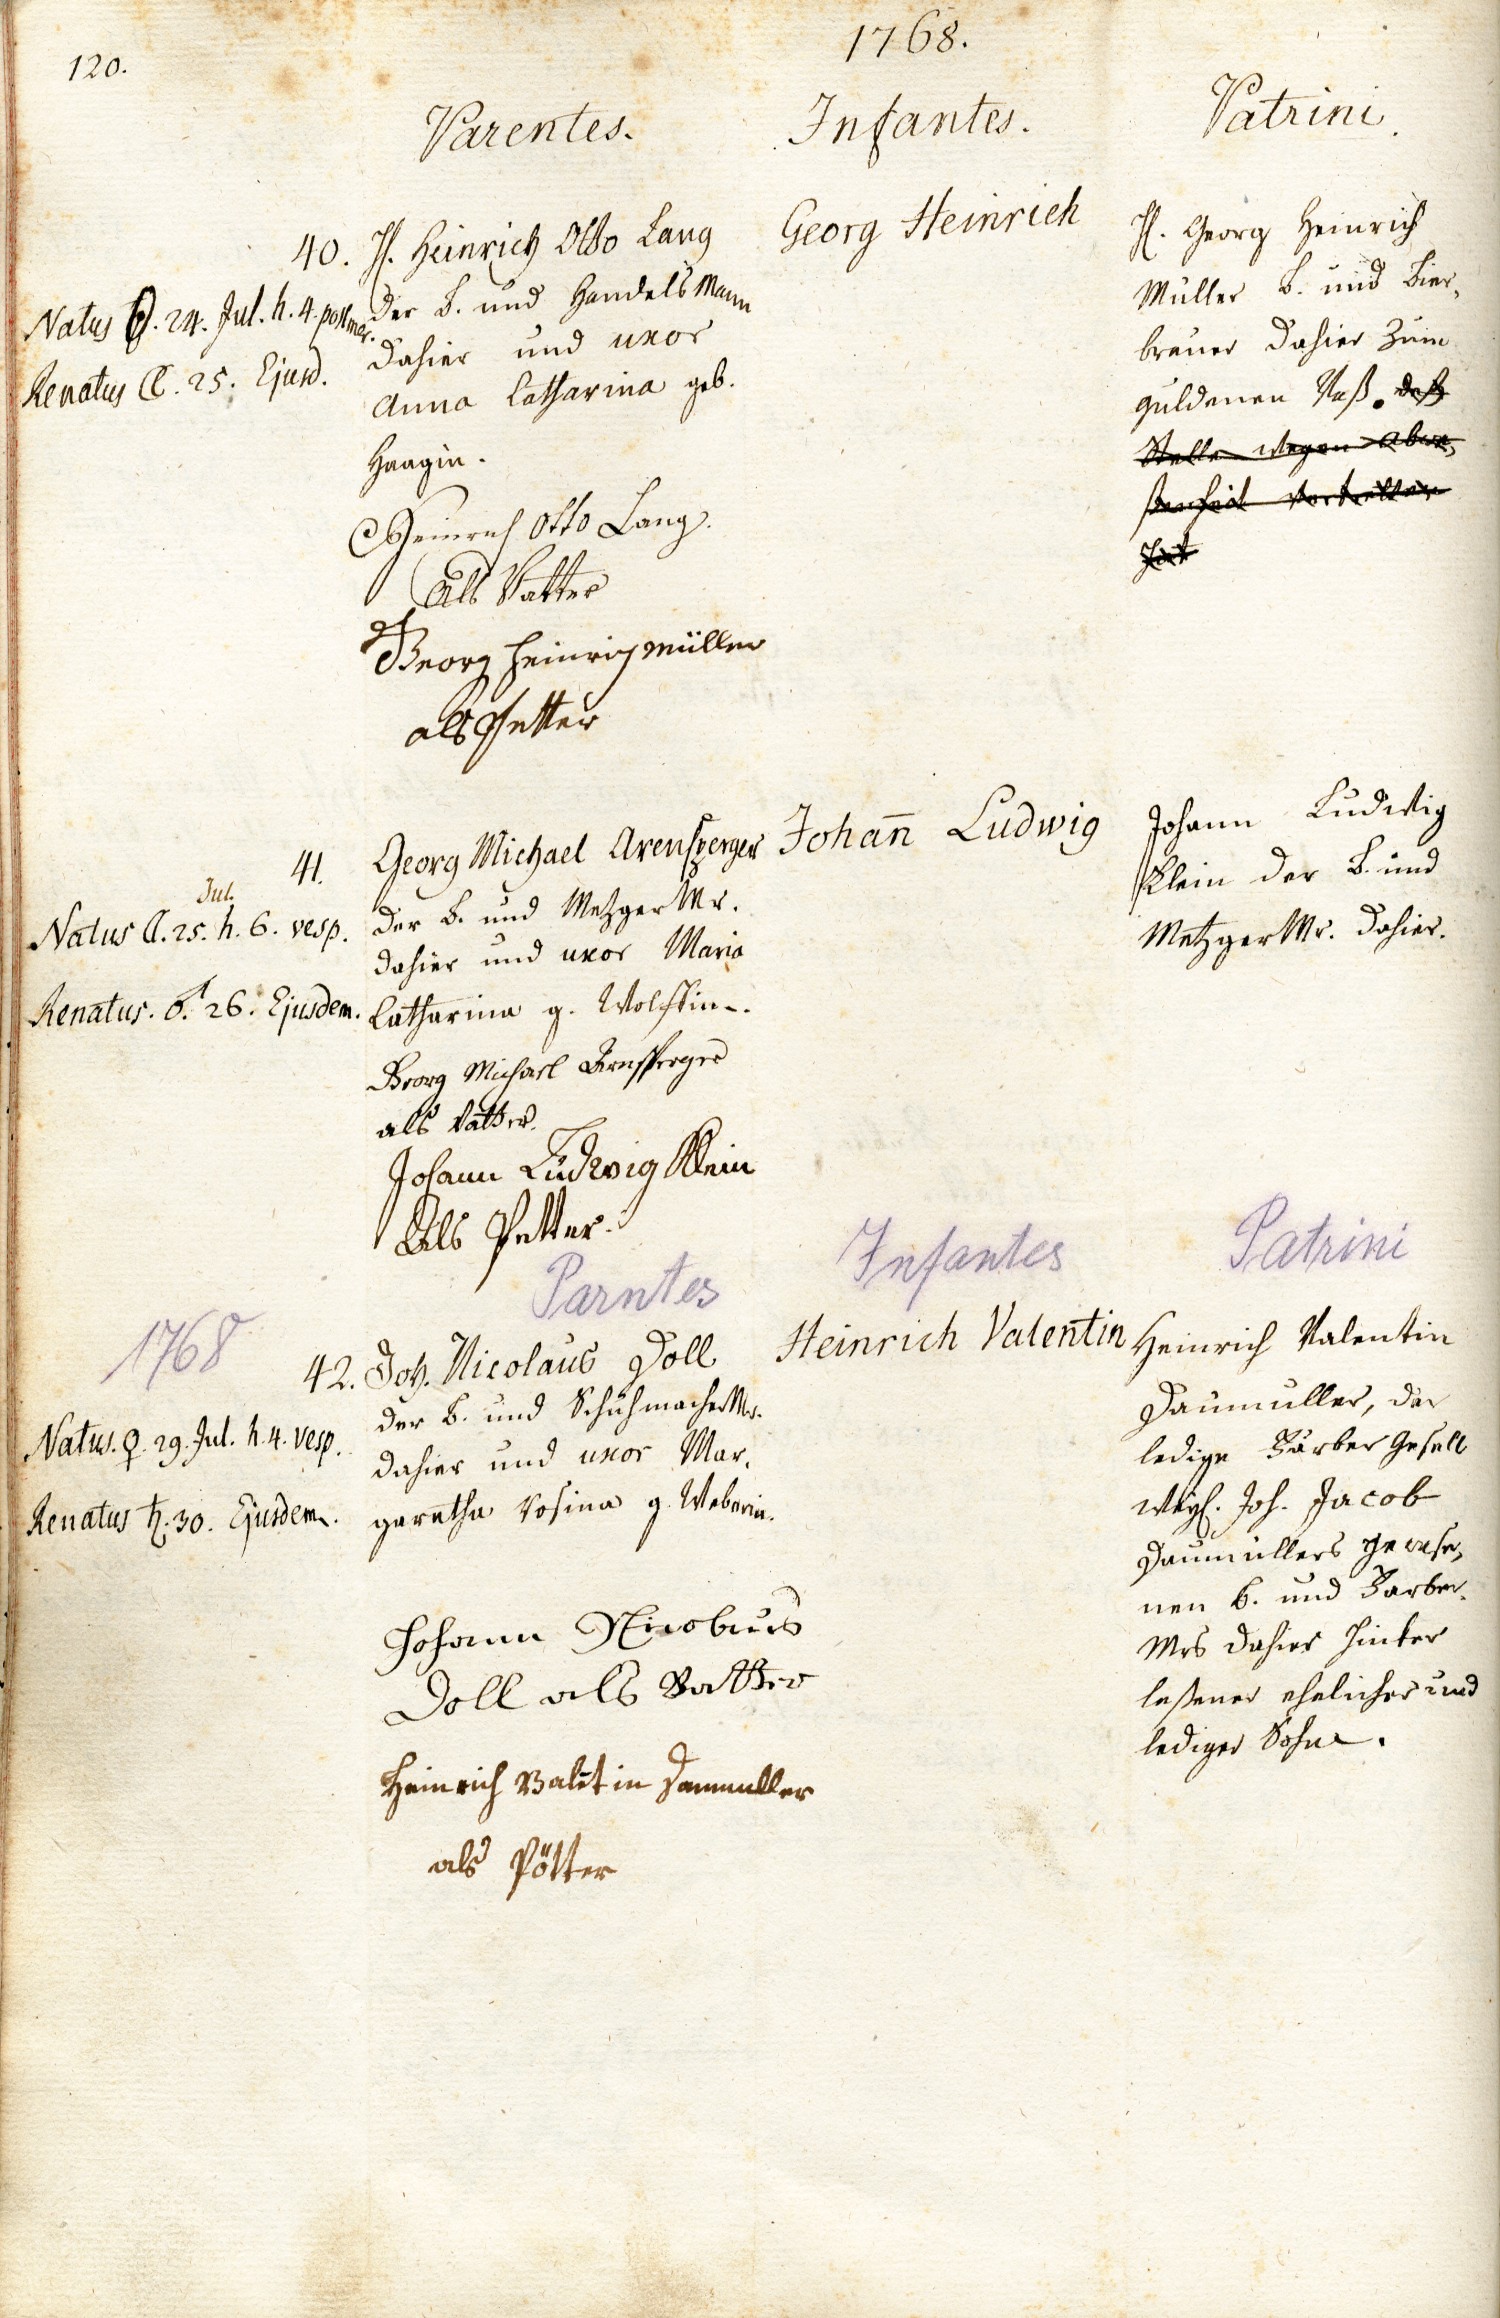 120.
1768.
Parentes.
Infantes.
Patrini.
40.
Natus ☉. 24. Jul. h. 4. post mer.
Renatus ☾. 25. Ejusd.
H. Heinrich Otto Lang
der b. und HandelsMann
dahier und uxor
Anna Catharina geb.
Haagin.
Heinrich Otto Lang.
Als Vatter
Georg Heinrich Müller
als Petter
Georg Heinrich
H. Georg Heinrich
Müller b. und Bier,
brauer dahier zum
guldenen Vaß. deß
Stelle wegen Abwe,
senheit vertretten
hat
41.
Jul.
Natus ☾. 25. h. 6. vesp.
Renatus. ♂. 26. Ejusdem.
Georg Michael Arensperger
der b. und Metzger Mr.
dahier und uxor Maria
Catharina g. Wolffin.
Georg Michael Arnsperger
als Vatter.
Johann Ludwig Klein
Als Petter.
Johan̄ Ludwig
Johann Ludwig
Klein der b. und
Metzger Mr. dahier.
1768
Parntes
Infantes
Patrini
42.
Natus. ♀. 29. Jul. h. 4. vesp.
Renatus ♄. 30. Ejusdem.
Joh. Nicolaus Doll
der b. und Schuhmacher Mr.
dahier und uxor Mar,
garetha Rosina g. Weberin.
Johann Nicolaus
Doll als Vatter
Heinrich Valētin Daumuller
als Pötter
Heinrich Valentin
Heinrich Valentin
Daumuller, der
ledige Färber Gesell
weyl. Joh. Jacob
Daumüllers gewese,
nen b. und Farber
Mrs dahier hinter
laßener ehelicher und
lediger Sohn.